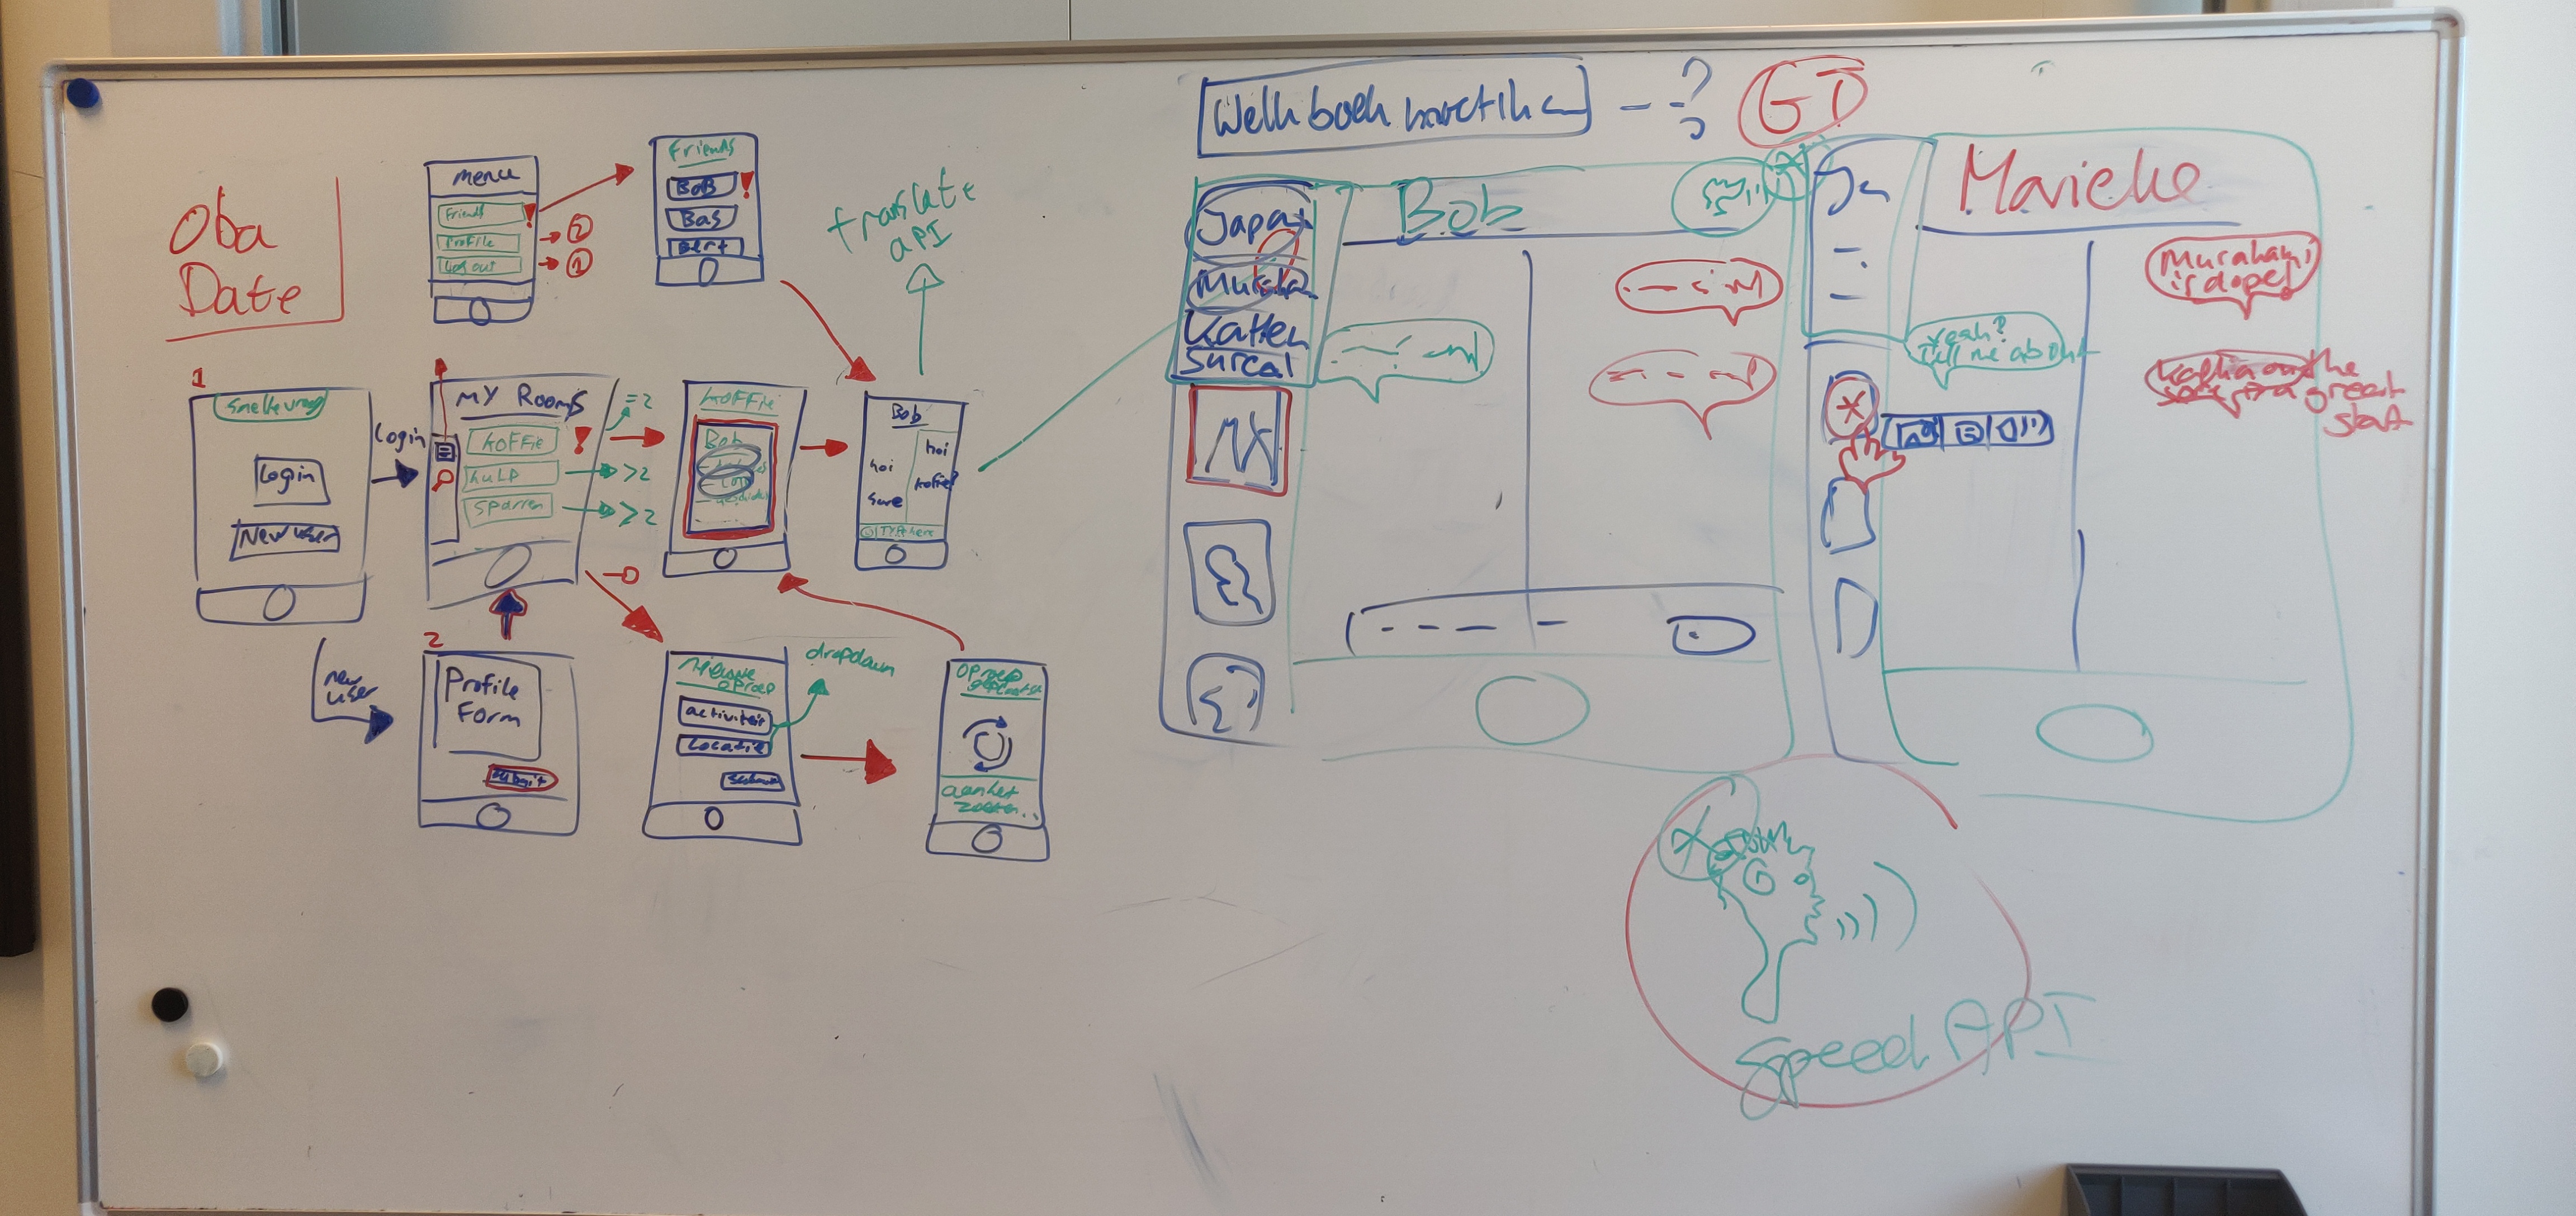 Oba
Date
Menu
Friends !
Profile → 2
Log out → 1
Friends
Bob !
Bas
Bert
translate
API
1
Login
New user
Login
MY Rooms
koffie ! =2
hulp >2
sparren >2
koffie
Bob
Bob
hoi
hoi
koffie?
sure
Type here
new
user
2
Profile
Form
submit
nieuwe
oproep
activiteit
Locatie
submit
dropdown
oproep
geplaatst
aan het
zoeken...
Welk boek
- - ?
GT
Japan
Katten
Bob
Marieke
Murakami
is dope!
Yeah?
Tell me about
Kafka on the
great
start
Speed API